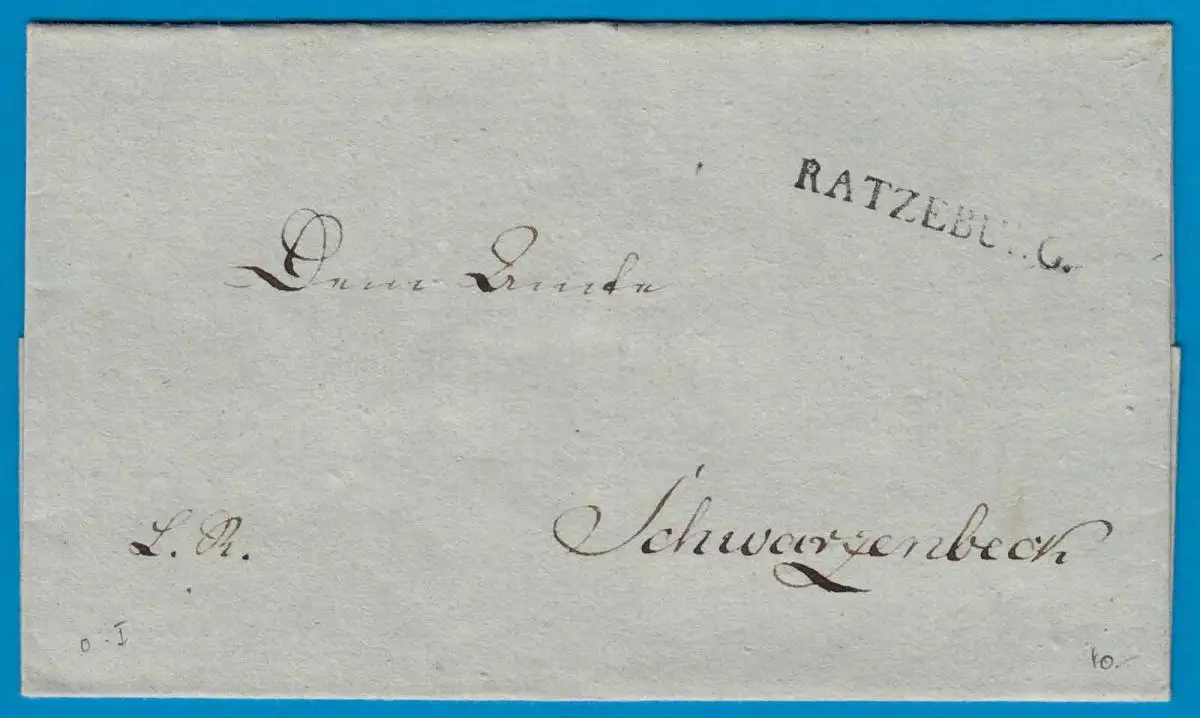 RATZEBURG.
Dem Amte
L. R.
Schwarzenbeck
0 . I
40.-